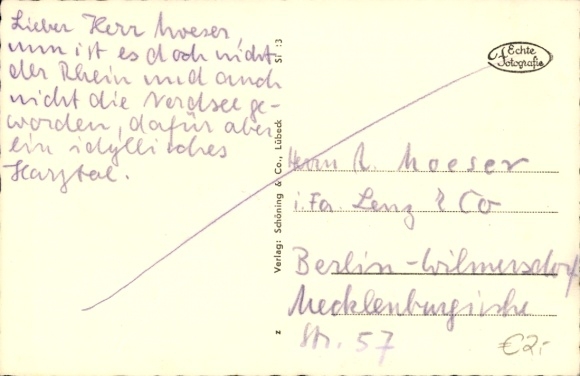 Lieber Herr Moeser,
nun ist es doch nicht
der Rhein und auch
nicht die Nordsee ge-
worden, dafür aber
ein idyllisches
Harztal.
Verlag: Schöning & Co., Lübeck
St 13
z
Echte
Fotografie
Herrn R. Moeser
i. Fa. Lenz & Co
Berlin-Wilmersdorf
Mecklenburgische
Str. 57
€2,-